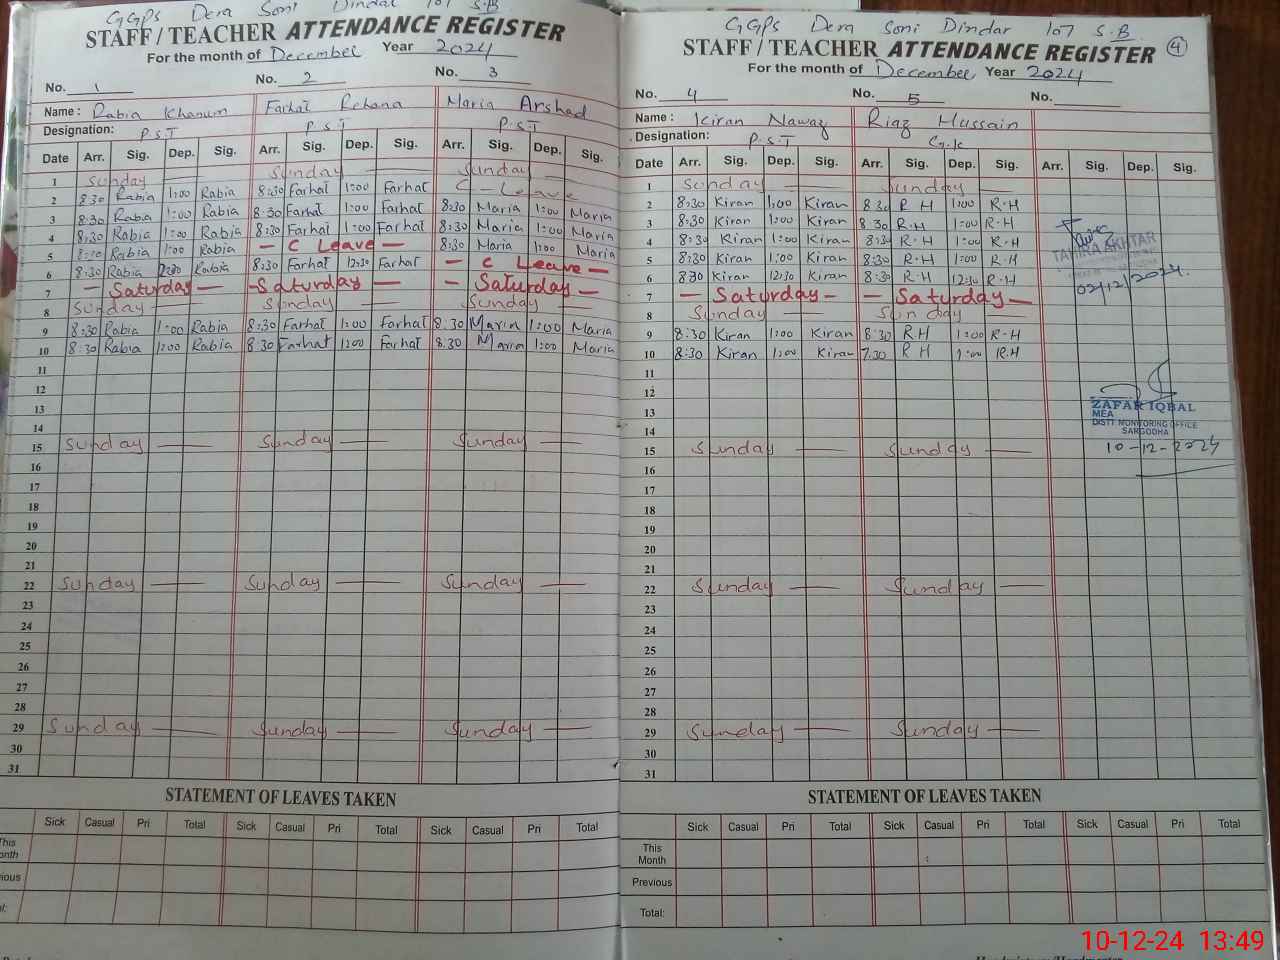 GGPS Dera Soni Dindar 107 S.B
STAFF/TEACHER ATTENDANCE REGISTER
For the month of December Year 2024
No. 1 No. 2 No. 3
Name: Rabia Khanum Farhat Rehana Maria Arshad
Designation: P.S.T P.S.T P.S.T
Date Arr. Sig. Dep. Sig. Arr. Sig. Dep. Sig. Arr. Sig. Dep. Sig.
1 Sunday Sunday Sunday
2 8:30 Rabia 1:00 Rabia 8:30 Farhat 1:00 Farhat C - Leave
3 8:30 Rabia 1:00 Rabia 8:30 Farhat 1:00 Farhat 8:30 Maria 1:00 Maria
4 8:30 Rabia 1:00 Rabia 8:30 Farhat 1:00 Farhat 8:30 Maria 1:00 Maria
5 8:30 Rabia 1:00 Rabia — C Leave — 8:30 Maria 1:00 Maria
6 8:30 Rabia 12:30 Rabia 8:30 Farhat 12:30 Farhat — C Leave —
7 — Saturday — — Saturday — — Saturday —
8 Sunday Sunday Sunday
9 8:30 Rabia 1:00 Rabia 8:30 Farhat 1:00 Farhat 8:30 Maria 1:00 Maria
10 8:30 Rabia 1:00 Rabia 8:30 Farhat 1:00 Farhat 8:30 Maria 1:00 Maria
11
12
13
14
15 Sunday Sunday Sunday
16
17
18
19
20
21
22 Sunday Sunday Sunday
23
24
25
26
27
28
29 Sunday Sunday Sunday
30
31
STATEMENT OF LEAVES TAKEN
Sick Casual Pri Total Sick Casual Pri Total Sick Casual Pri Total
GGPS Dera Soni Dindar 107 S.B
STAFF/TEACHER ATTENDANCE REGISTER 4
For the month of December Year 2024
No. 4 No. 5 No.
Name: Kiran Nawaz Riaz Hussain
Designation: P.S.T
Date Arr. Sig. Dep. Sig. Arr. Sig. Dep. Sig. Arr. Sig. Dep. Sig.
1 Sunday Sunday
2 8:30 Kiran 1:00 Kiran 8:30 R H 1:00 R.H
3 8:30 Kiran 1:00 Kiran 8:30 R.H 1:00 R.H
4 8:30 Kiran 1:00 Kiran 8:30 R.H 1:00 R.H
5 8:30 Kiran 1:00 Kiran 8:30 R.H 1:00 R.H
6 8:30 Kiran 12:30 Kiran 8:30 R.H 12:30 R.H
7 — Saturday — — Saturday —
8 Sunday Sunday
9 8:30 Kiran 1:00 Kiran 8:30 RH 1:00 R.H
10 8:30 Kiran 1:00 Kiran 7:30 R H 1:00 R.H
11
12
13
14
15 Sunday Sunday
16
17
18
19
20
21
22 Sunday Sunday
23
24
25
26
27
28
29 Sunday Sunday
30
31
TAHIRA AKHTAR
02/12/2024.
ZAFAR IQBAL
MEA
DISTT MONITORING OFFICE
SARGODHA
10-12-2024
STATEMENT OF LEAVES TAKEN
Sick Casual Pri Total Sick Casual Pri Total Sick Casual Pri Total
This Month
Previous
Total:
10-12-24 13:49